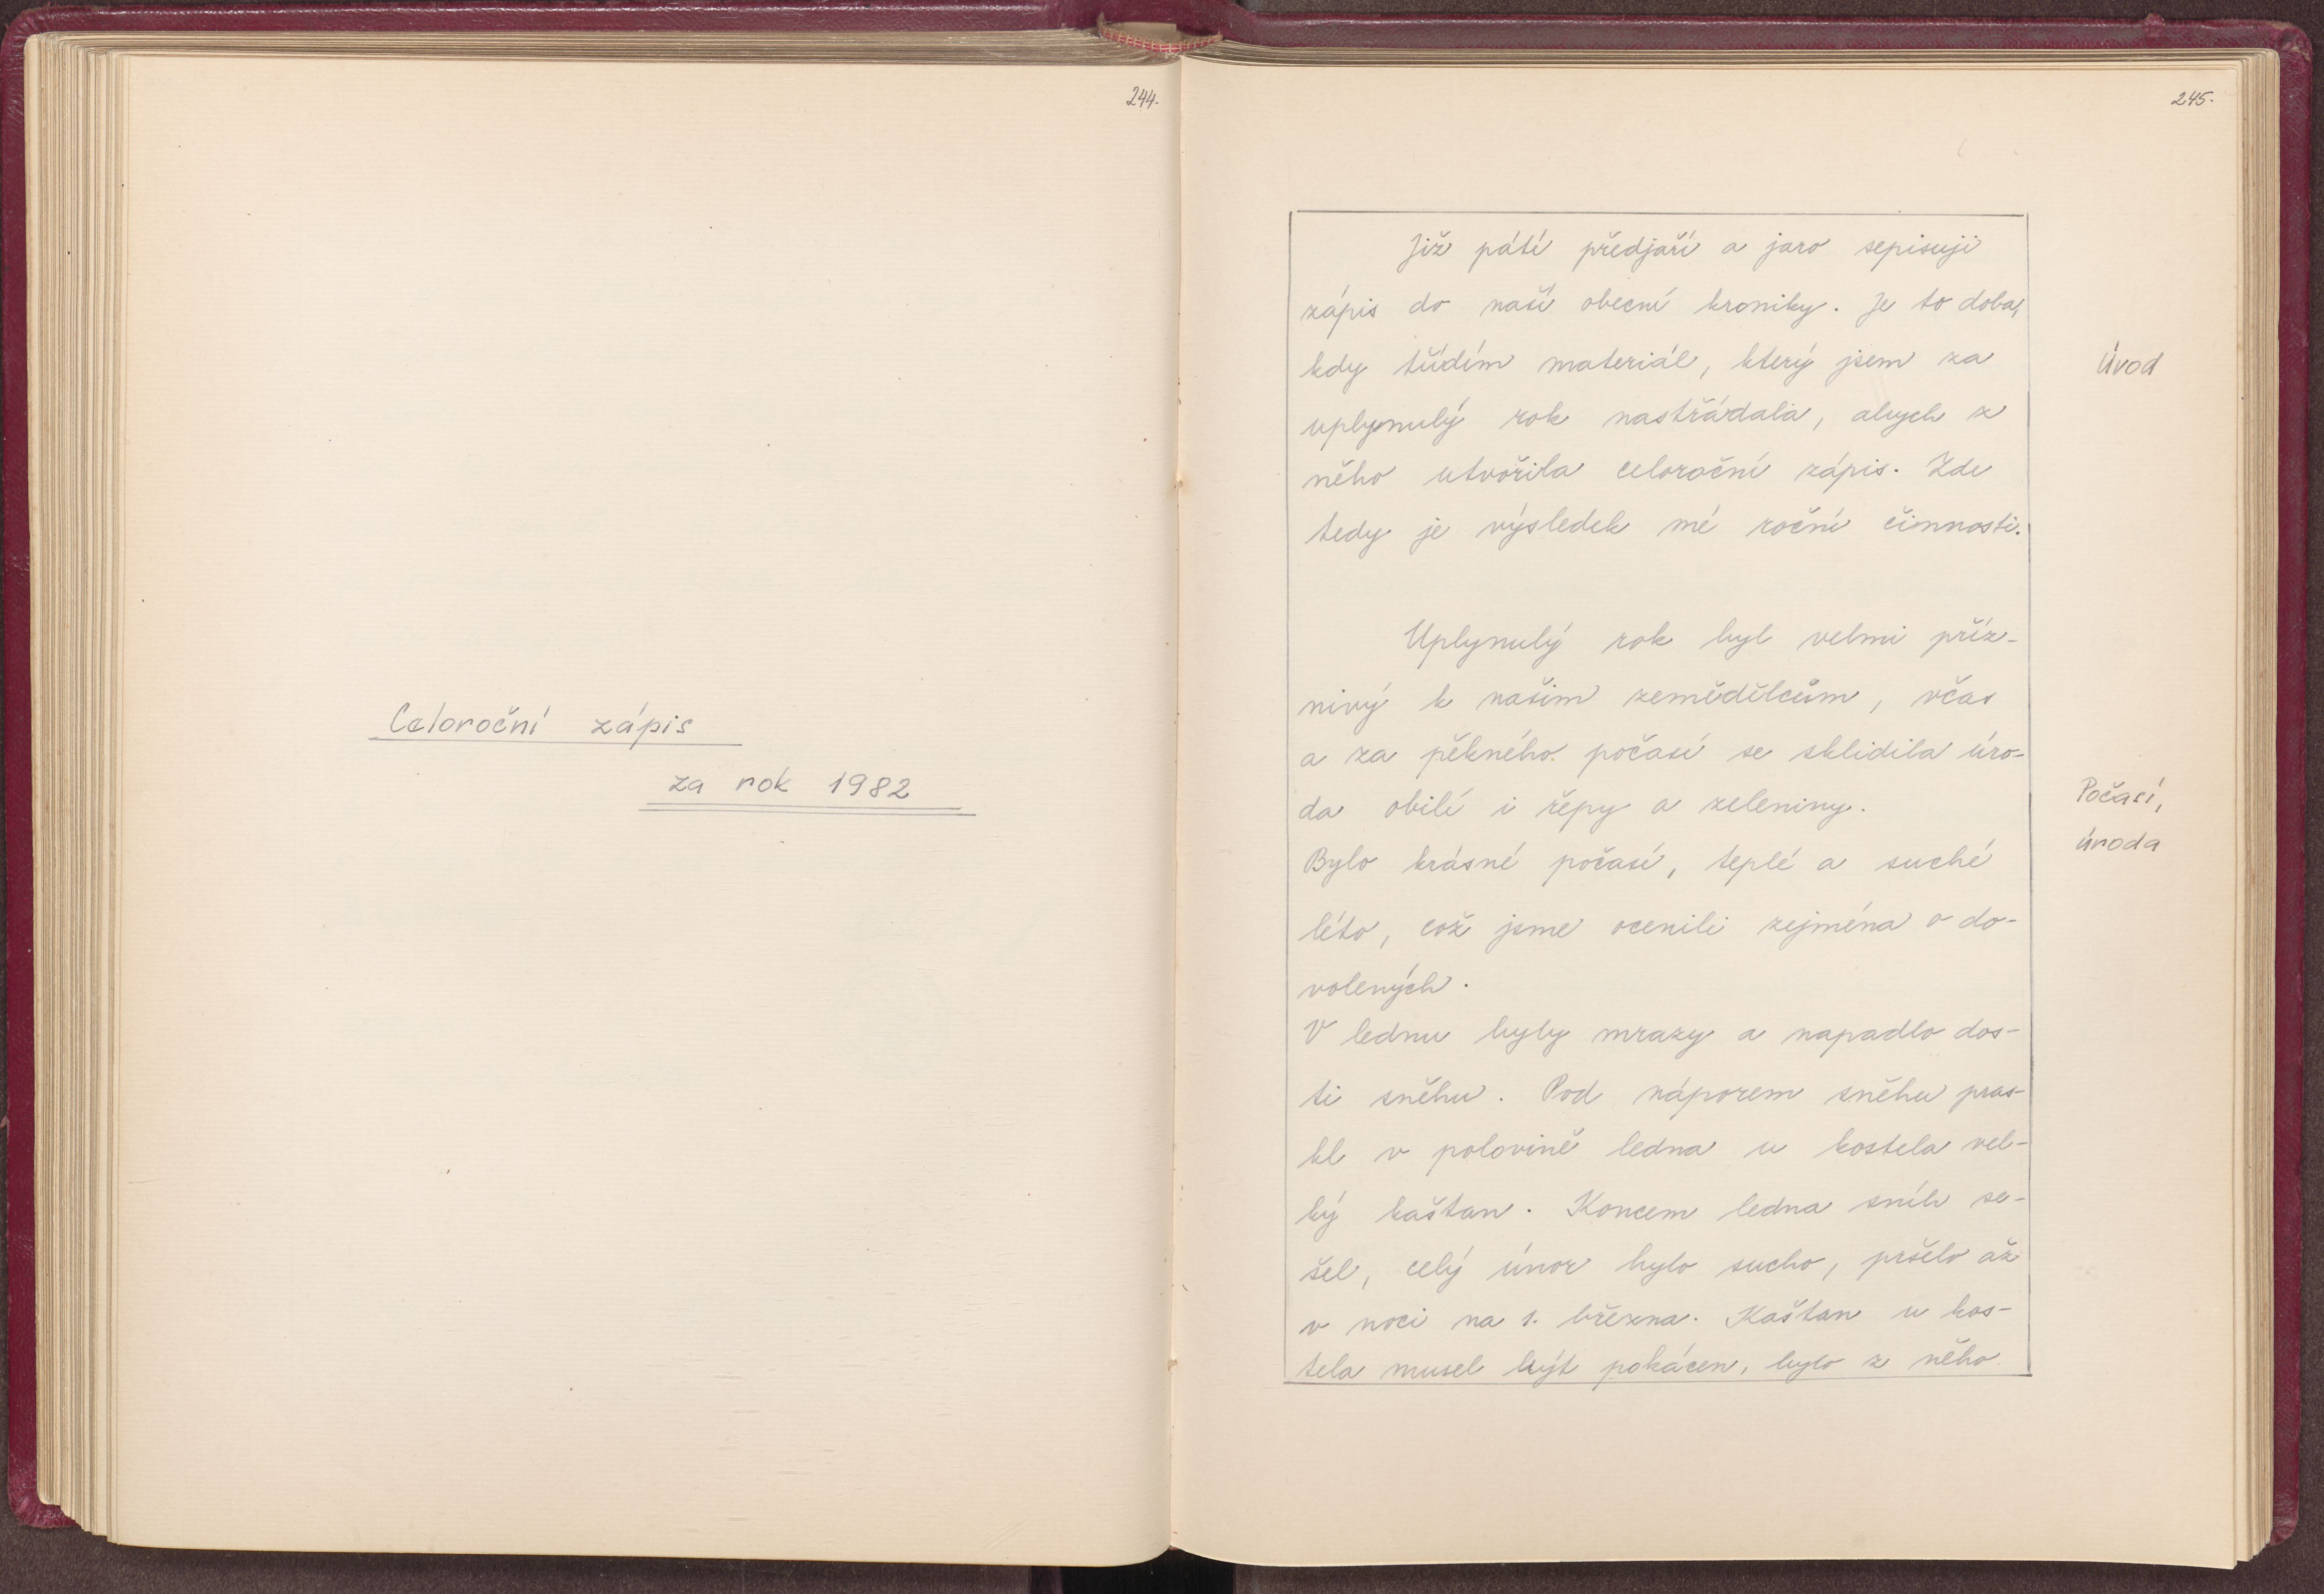 244.
Celoroční zápis
za rok 1982
245.
Již páté předjaří a jaro sepisuji
zápis do naší obecní kroniky. Je to doba,
kdy třídím materiál, který jsem za
Úvod
uplynulý rok nastřádala, abych z
něho utvořila celoroční zápis. Zde
tedy je výsledek mé roční činnosti.
Uplynulý rok byl velmi příz-
nivý k našim zemědělcům, včas
a za pěkného počasí se sklidila úro-
da obilí i řepy a zeleniny.
Počasí,
úroda
Bylo krásné počasí, teplé a suché
léto, což jsme ocenili zejména o do-
volených.
V lednu byly mrazy a napadlo dos-
ti sněhu. Pod náporem sněhu pras-
kl v polovině ledna u kostela vel-
ký kaštan. Koncem ledna sníh se-
šel, celý únor bylo sucho, pršelo až
v noci na 1. března. Kaštan u kos-
tela musel být pokácen, bylo z něho